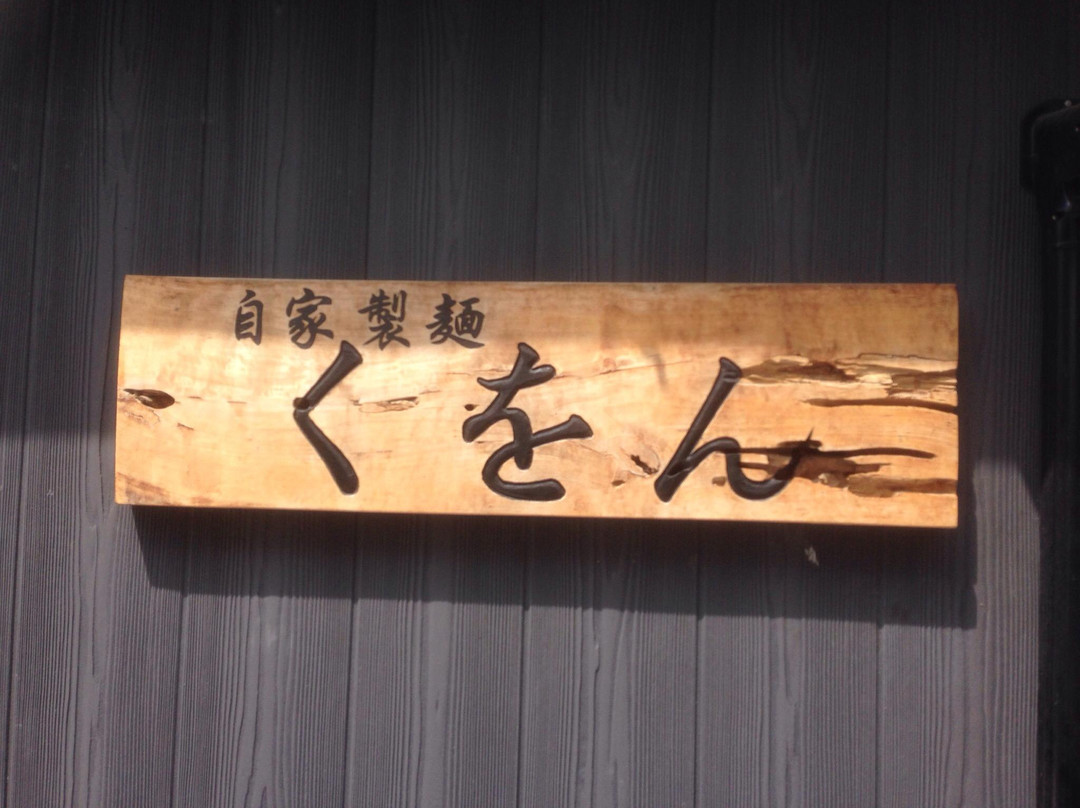 自家製麺
くをん